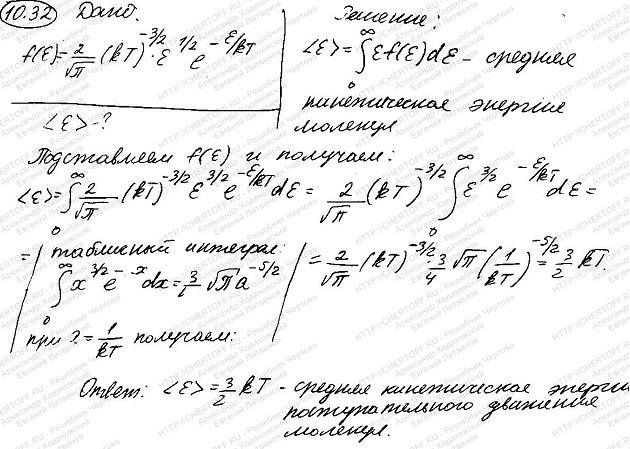 10.32 Дано:
f(ε)=2/√π (kT)^-3/2 · ε^1/2 e^-ε/kT
<ε>-?
Решение:
<ε>=∫₀^∞ εf(ε)dε - средняя
кинетическая энергия
молекул
Подставляем f(ε) и получаем:
<ε>=∫₀^∞ 2/√π (kT)^-3/2 ε^3/2 e^-ε/kT dε = 2/√π (kT)^-3/2 ∫₀^∞ ε^3/2 e^-ε/kT dε =
= | табличный интеграл:
∫₀^∞ x^3/2 e^-x dx = 3/4 √π a^-5/2
при = 1/kT получаем:
= 2/√π (kT)^-3/2 · 3/4 √π (1/kT)^-5/2 = 3/2 kT.
Ответ: <ε>=3/2 kT - средняя кинетическая энергия
поступательного движения
молекул.